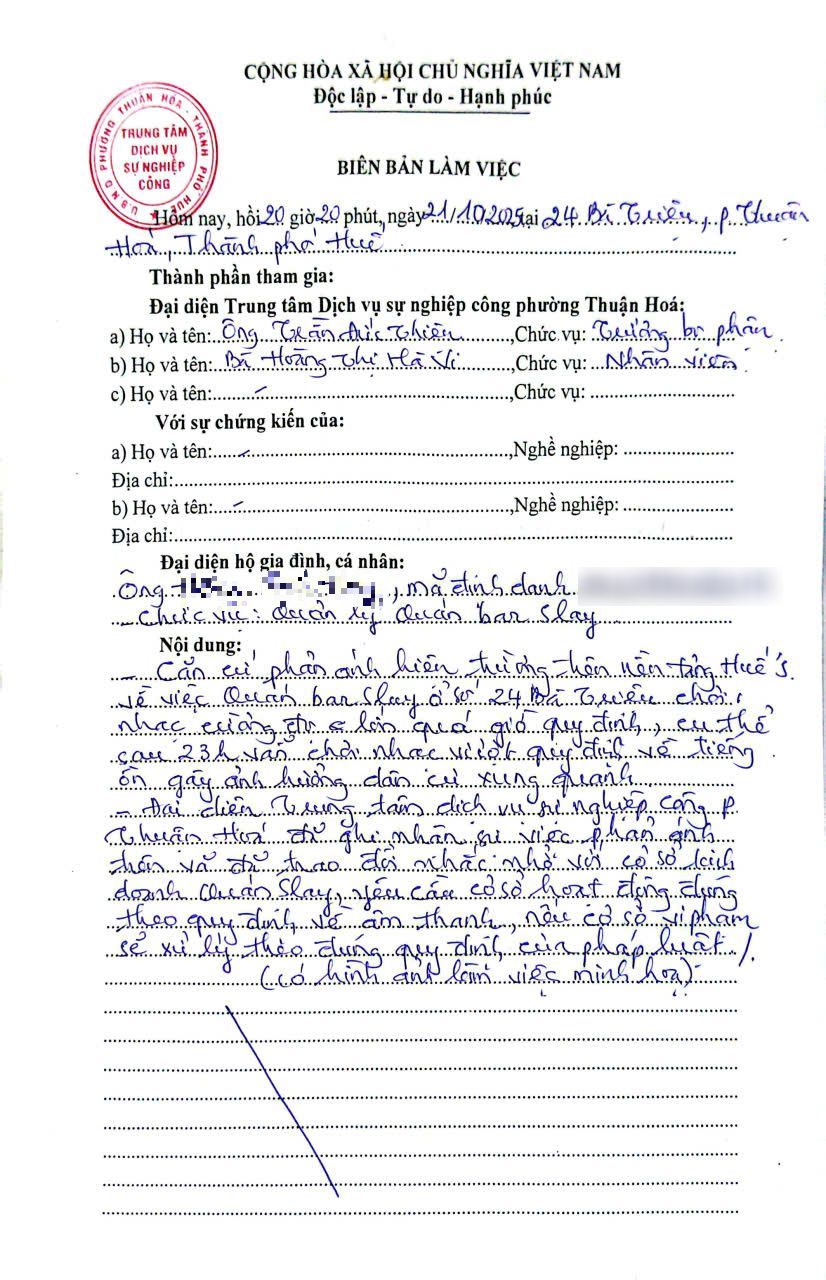 CỘNG HÒA XÃ HỘI CHỦ NGHĨA VIỆT NAM
Độc lập - Tự do - Hạnh phúc
U.B.N.D PHƯỜNG THUẬN HÓA - THÀNH PHỐ HUẾ
TRUNG TÂM
DỊCH VỤ
SỰ NGHIỆP
CÔNG
BIÊN BẢN LÀM VIỆC
Hôm nay, hồi 20 giờ 20 phút, ngày 21/10/2025 tại 24 Bà Triệu, p. Thuận
Hoá, Thành phố Huế
Thành phần tham gia:
Đại diện Trung tâm Dịch vụ sự nghiệp công phường Thuận Hoá:
a) Họ và tên: Ông Trần Đức Thiên, Chức vụ: Trưởng bộ phận
b) Họ và tên: Bà Hoàng Thị Hà Vi, Chức vụ: Nhân viên
c) Họ và tên:, Chức vụ:
Với sự chứng kiến của:
a) Họ và tên:, Nghề nghiệp:
Địa chỉ:
b) Họ và tên:, Nghề nghiệp:
Địa chỉ:
Đại diện hộ gia đình, cá nhân:
Ông, mã định danh
- Chức vụ: Quản lý Quán bar Slay
Nội dung:
- Căn cứ phản ánh hiện trường trên nền tảng Huế S.
về việc Quán bar Slay ở số 24 Bà Triệu chơi
nhạc cường độ lớn quá giờ quy định, cụ thể
sau 23h vẫn chơi nhạc vượt quy định về tiếng
ồn gây ảnh hưởng dân cư xung quanh
- Đại diện Trung tâm dịch vụ sự nghiệp công p.
Thuận Hoá đã ghi nhận sự việc phản ánh
trên và đã trao đổi nhắc nhở với cơ sở kinh
doanh Quán Slay, yêu cầu cơ sở hoạt động đúng
theo quy định về âm thanh, nếu cơ sở vi phạm
sẽ xử lý theo đúng quy định của pháp luật ./.
(có hình ảnh làm việc minh hoạ)